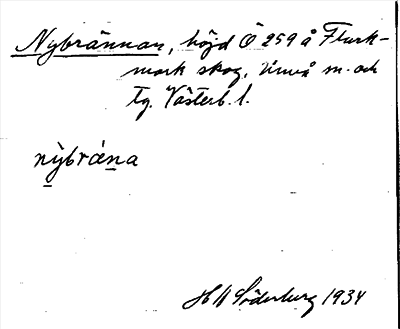 Nybrännan, höjd Ö 259 å Flurk-
mark skog, Umeå sn. och
tg. Västerb. l.
nỳbrǽna
H Söderburg 1934